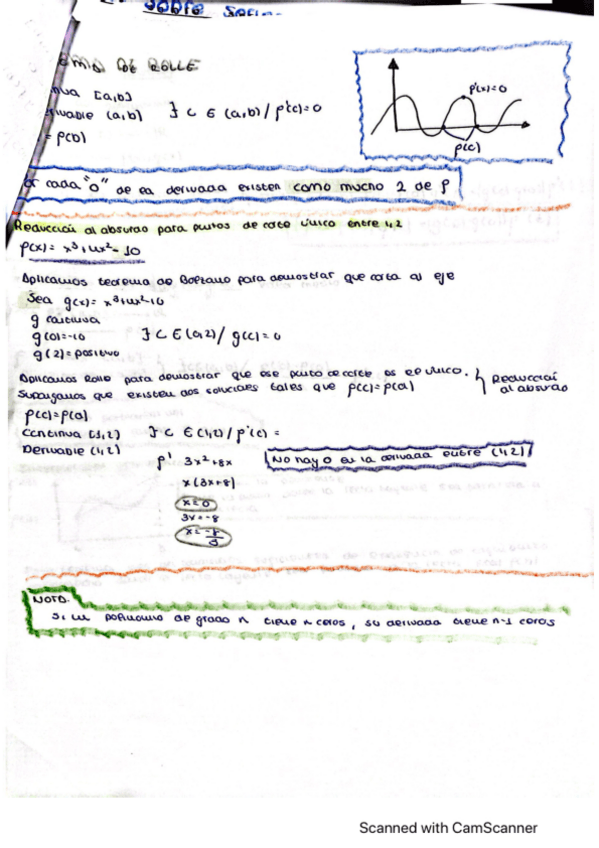 sobre
DE ROLLE
[a,b]
(a,b) ∃ C ∈ (a,b) / p'(c)=0
= p(b)
p'(x)=0
p(c)
cada "0" de la derivada existen como mucho 2 de p
Reducción al absurdo para puntos de corte único entre 1,2
p(x) = x³+4x²-10
Aplicamos teorema de Bolzano para demostrar que corta al eje
Sea g(x) = x³+4x²-10
g continua
g(0)=-10 ∃ C ∈ (0,2) / g(c)=0
g(2)=positivo
Aplicamos Rolle para demostrar que ese punto de corte es el único.
Supongamos que existen dos soluciones tales que p(c)=p(d) } Reducción al absurdo
p(c)=p(d)
Continua [1,2] ∃ C ∈ (1,2) / p'(c) =
Derivable (1,2)
No hay 0 en la derivada entre (1,2)
p' 3x²+8x
x(3x+8)
x=0
3x=-8
x=-8/3
NOTA.
Si un polinomio de grado n tiene n ceros, su derivada tiene n-1 ceros
Scanned with CamScanner